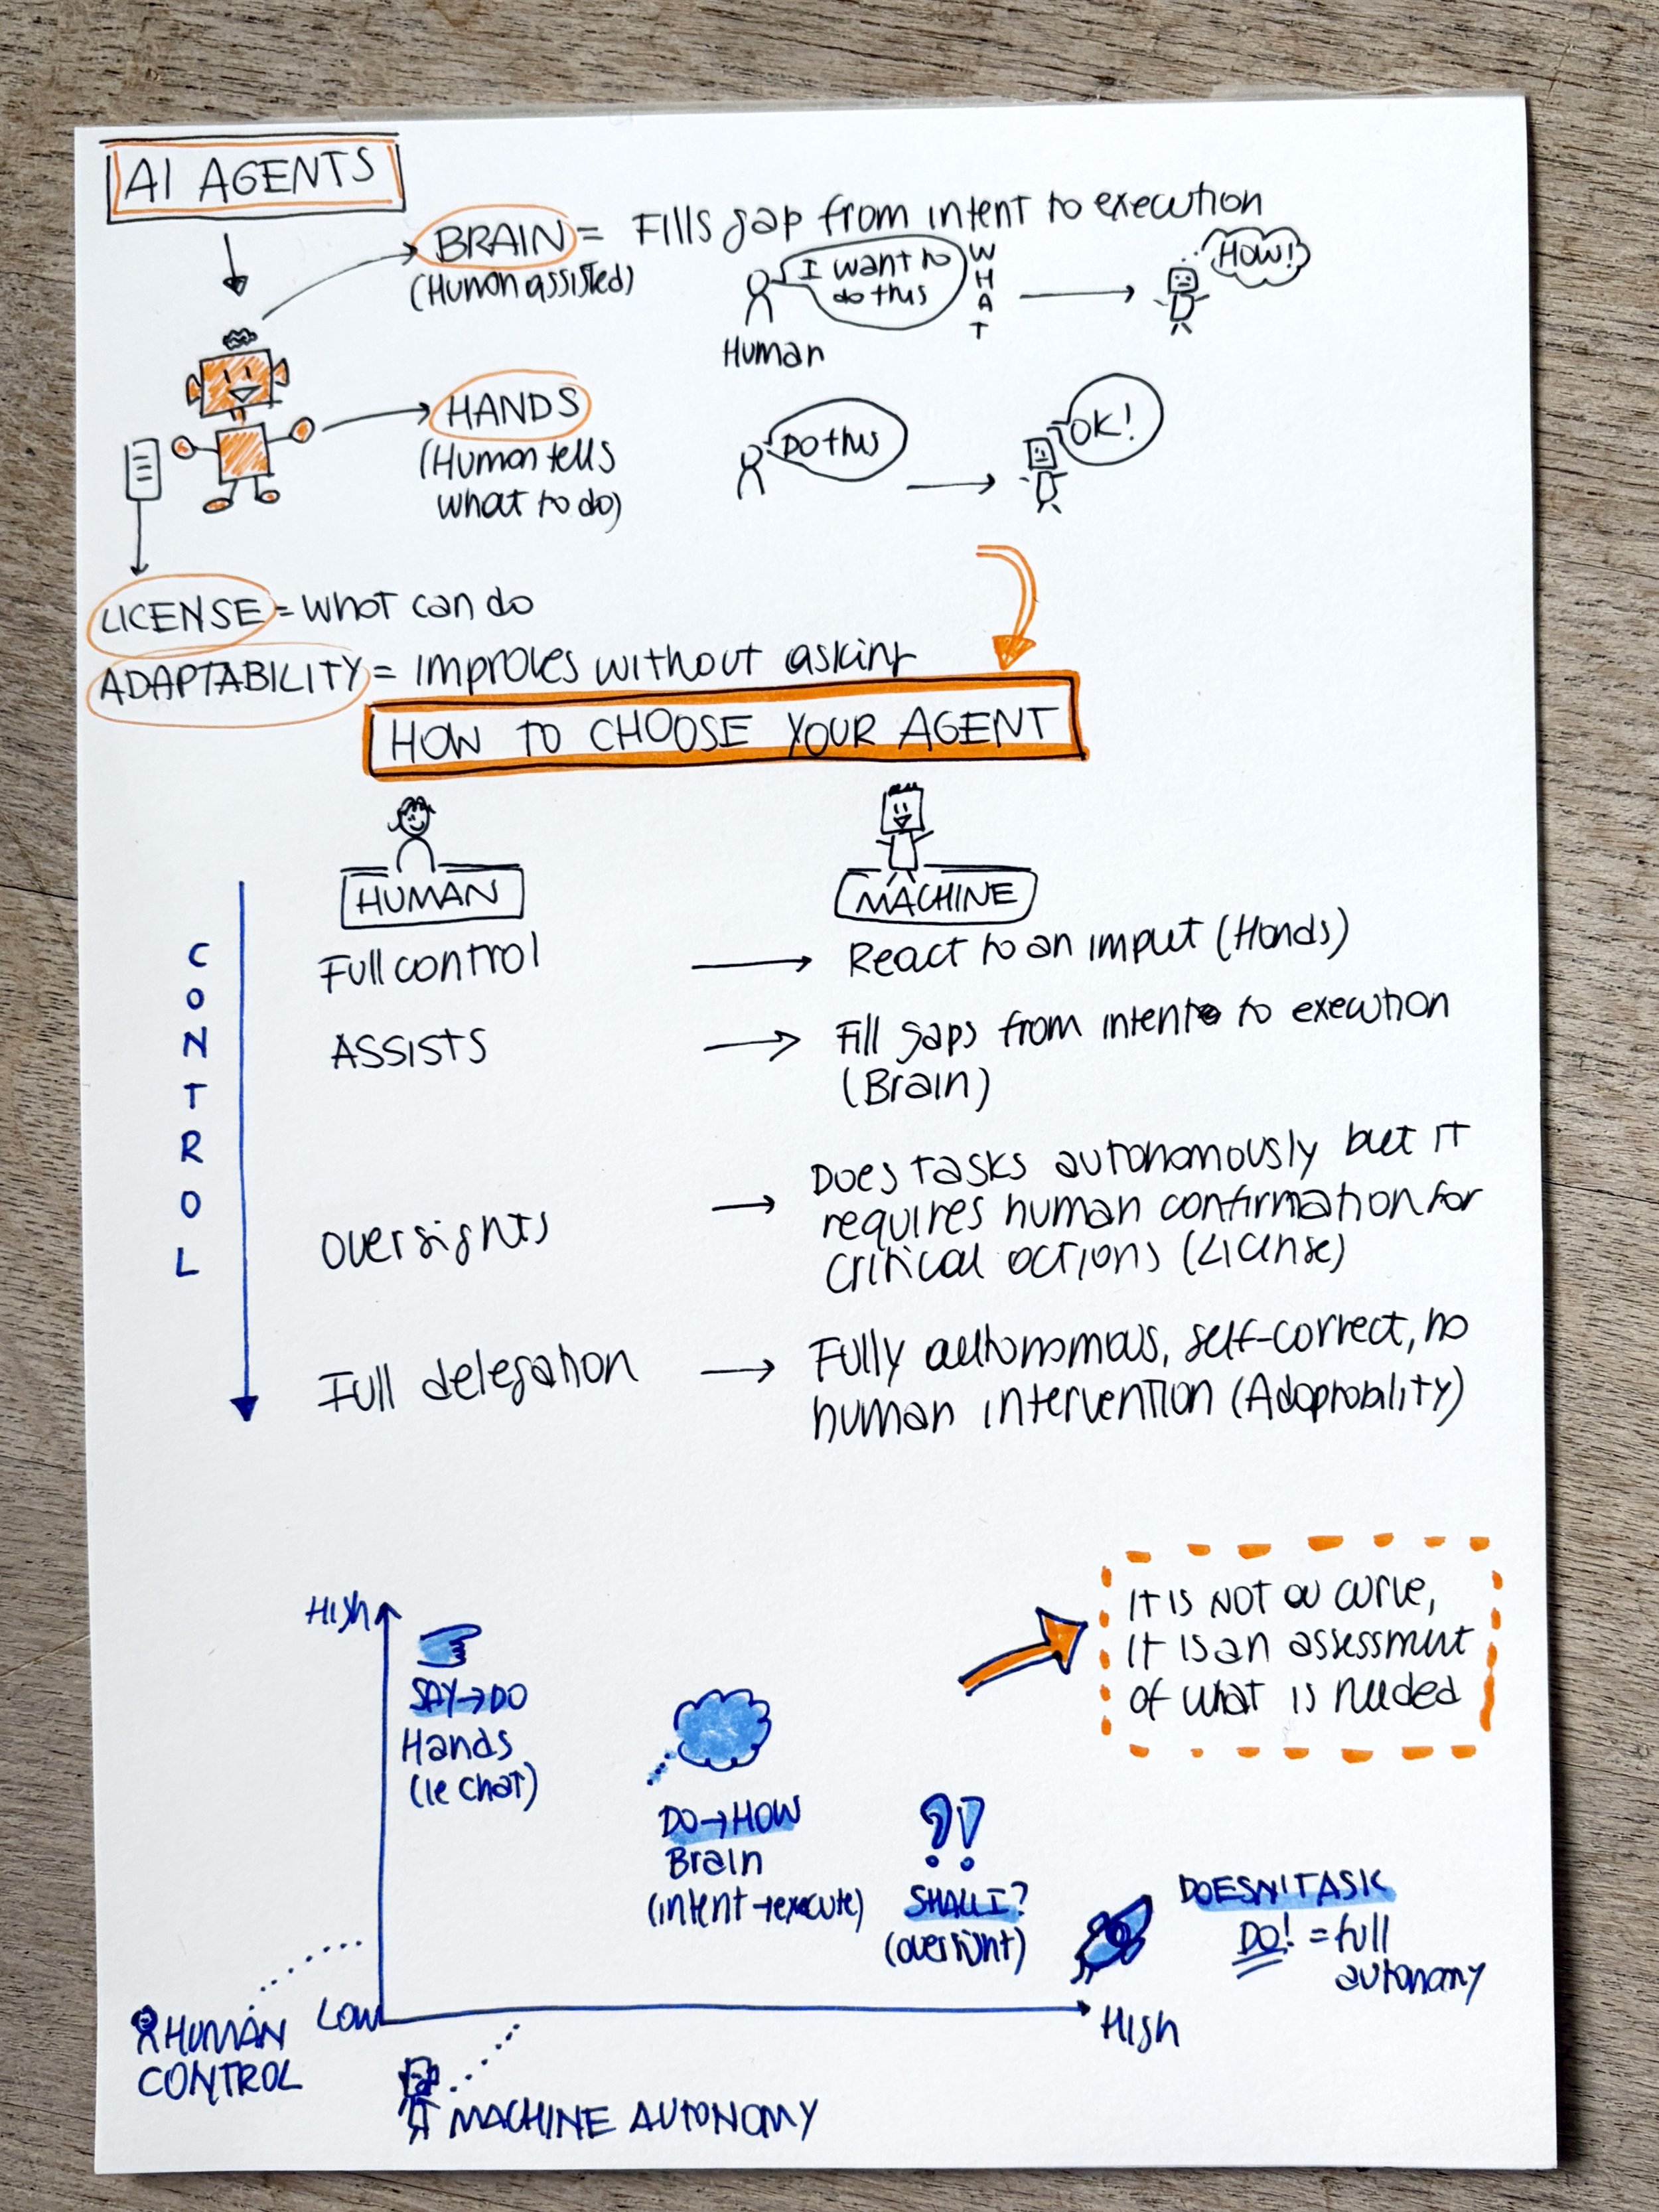 AI AGENTS
BRAIN = Fills gap from intent to execution
(Human assisted)
I want to
do this
WHAT
HOW!
Human
HANDS
(Human tells
what to do)
DO this
OK!
LICENSE = what can do
ADAPTABILITY = improves without asking
HOW TO CHOOSE YOUR AGENT
HUMAN
MACHINE
CONTROL
Full control → React to an imput (Hands)
ASSISTS → Fill gaps from intent to execution
(Brain)
Oversights → Does tasks autonomously but it
requires human confirmation for
critical actions (License)
Full delegation → Fully autonomous, self-correct, no
human intervention (Adaptability)
It is NOT a curve,
it is an assessment
of what is needed
High
SAY→DO
Hands
(le chat)
DO→HOW
Brain
(intent→execute)
?!
SHALL I?
(oversight)
DOESN'T ASK
DO! = full
autonomy
LOW
High
HUMAN
CONTROL
MACHINE AUTONOMY